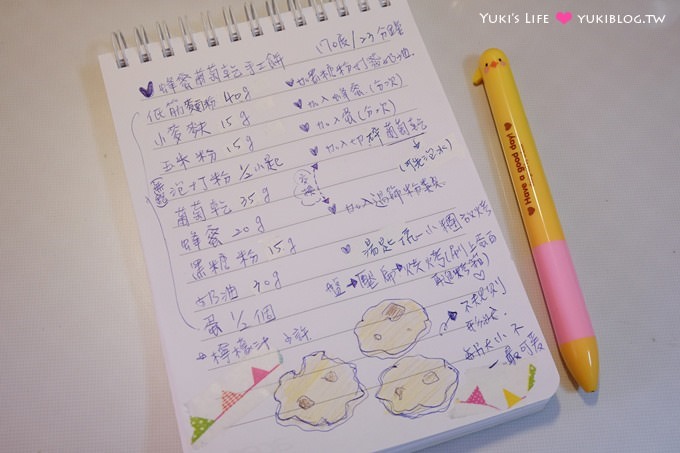 YUKI'S LIFE ♥ YUKIBLOG.TW
170度/23分鐘
♥ 蜂蜜葡萄乾手工餅
低筋麵粉 40g
小麥麩 15g
玉米粉 15g
泡打粉 1/2小匙
葡萄乾 35g
蜂蜜 20g
黑糖粉 15g
奶油 40g
蛋 1/2個
檸檬汁 少許
♥ 加黑糖粉打發奶油
♥ 加入蜂蜜(分次)
♥ 加入蛋(分次)
♥ 加入切碎葡萄乾
(先泡水)
♥ 加入過篩粉類
♥ 湯匙挖一小糰放烤
盤→壓扁→烤(刷上蛋白
再進烤箱)
不規則
形狀
每片大小不
一最可愛
Have a good day!